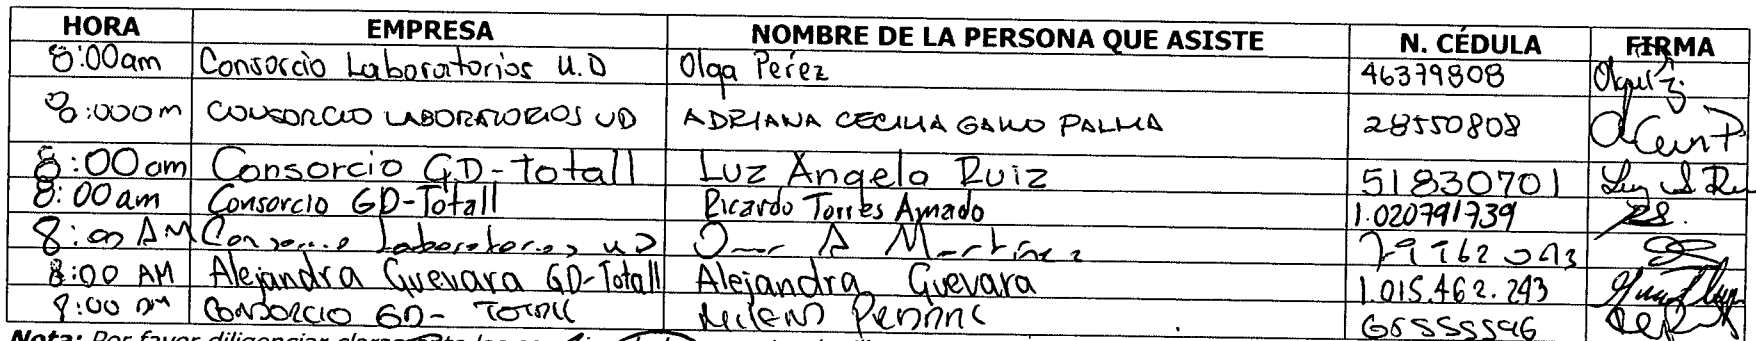 HORA EMPRESA NOMBRE DE LA PERSONA QUE ASISTE N. CÉDULA FIRMA
8:00am Consorcio Laboratorios U.D Olga Perez 46379808
8:00am CONSORCIO LABORATORIOS UD ADRIANA CECILIA GALLO PALMA 28550808
8:00am Consorcio GD-Totall Luz Angela Ruiz 51830701
8:00am Consorcio GD-Totall Ricardo Torres Amado 1.020791739
8:00 AM Consorcio Laboratorios UD A Martinez
8:00 AM Alejandra Guevara GD-Totall Alejandra Guevara 1.015.462.243
8:00 am CONSORCIO GD-
Nota: Por favor diligenciar